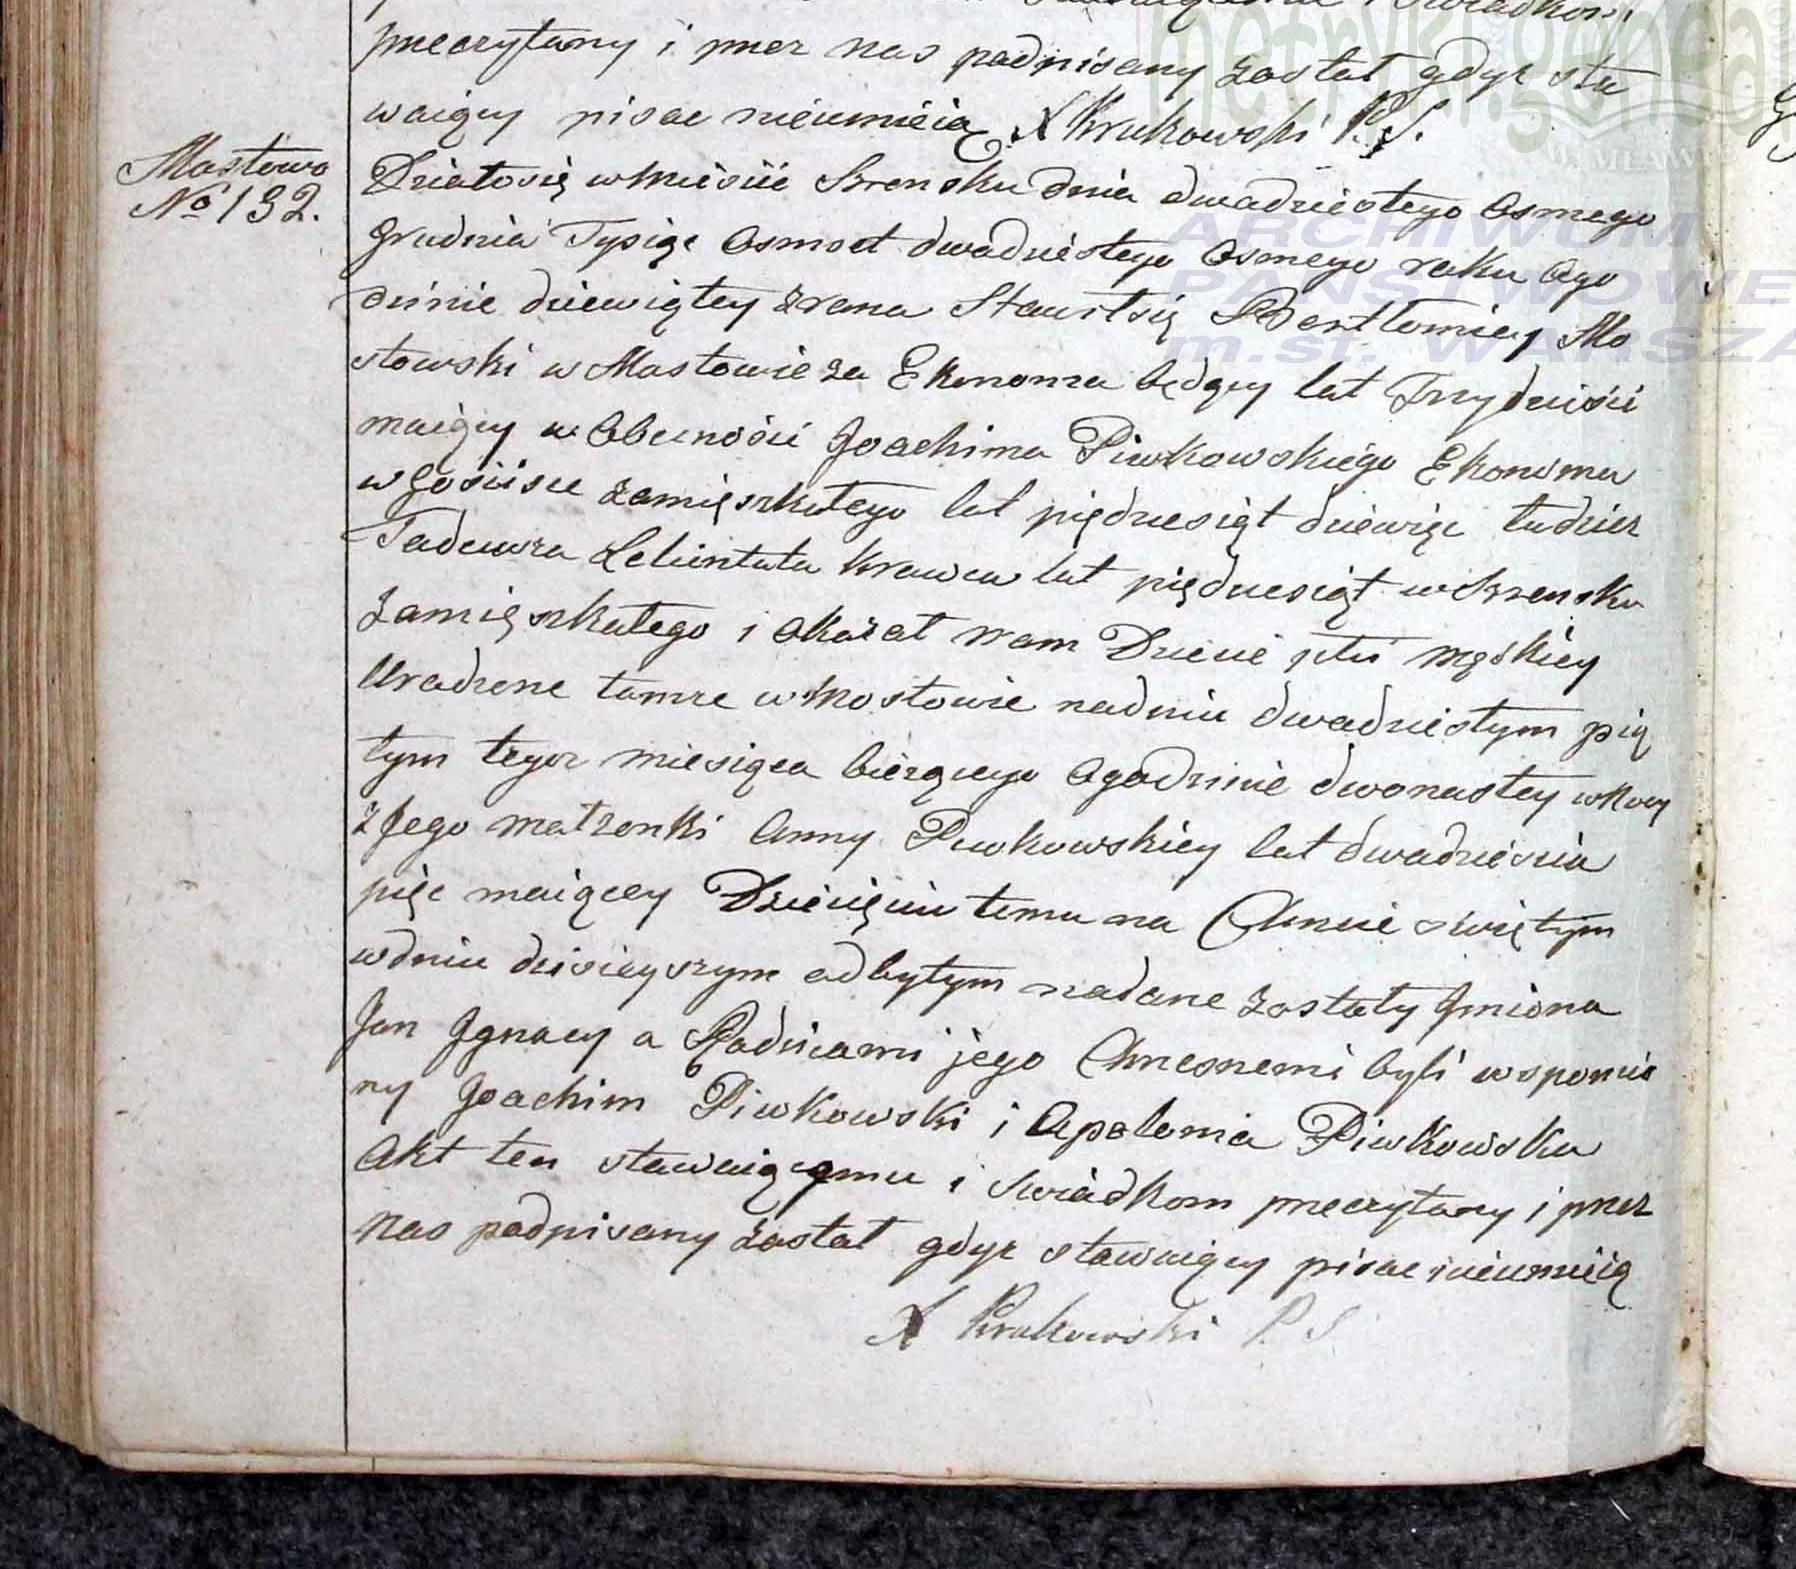 przeczytany i przez nas podpisany został gdyż sta
waiący pisac nieumieią X Krukowski P. S.
Mostowo
No 132.
Działosię wMieście Szrensku dnia dwadziestego Osmego
Grudnia Tysiąc Osmset dwudziestego Osmego roku Ogo
dzinie dziewiątey zrana Stawił się Bartłomiey Mo
stowski w Mostowie za Ekonoma będący lat Trzydziści
maiący w Obecności Joachima Piwkowskiego Ekonoma
w zamięszkałego lat pięddziesiąt dziewięc tudzież
Tadeusza Krawca lat pięddziesiąt w Szrensku
zamięszkałego i okazał nam Dziecie płci męskiey
Urodzone tamze w Mostowie nadniu dwadziestym pią
tym tegoz miesiąca bieżącego Ogodzinie dwonastey wNocy
z Jego małżonki Anny Piwkowskiey lat dwadzieścia
pięc maiącey Dziecięciu temu na Chrzcie świętym
wdniu dzisieyszym odbytym nadane zostały Jmiona
Jan Jgnacy a Rodzicami jego Chrzesnemi byli wspomnio
ny Joachim Piwkowski i Apolonia Piwkowska
Akt ten stawaiącemu i Swiadkom przeczytany i przez
nas podpisany został gdyż stawaiący pisac nieumieią
X Krukowski P. S
metryki.genea
W MŁAWIE
ARCHIWUM
PAŃSTWOWE
m.st. WARSZA